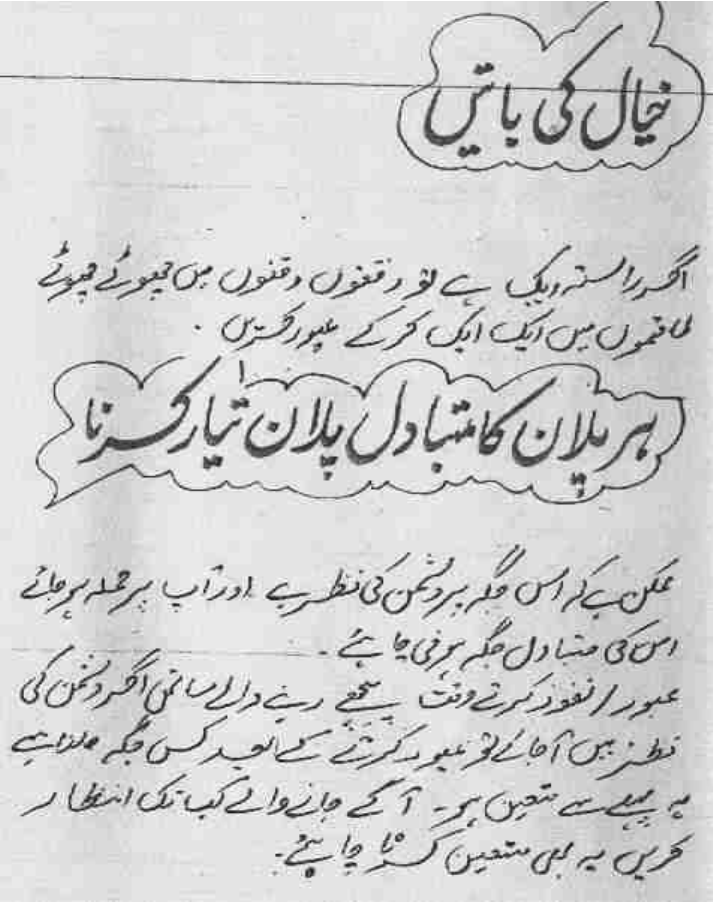 خیال کی باتیں
اگر راستہ ایک ہے تو وقفوں وقفوں میں چھوٹے چھوٹے
لاقموں میں ایک ایک کر کے عبور کریں۔
ہر پلان کا متبادل پلان تیار کرنا
ممکن ہے کہ اس جگہ پر دشمن کی نظر ہے اور آپ پر حملہ ہو جائے
اس کی متبادل جگہ ہونی چاہئے۔
عبور / نفوذ کرتے وقت پیچھے رہنے والے ساتھی اگر دشمن کی
نظر میں آجائے تو عبور کرنے کے بعد کس جگہ ملنا ہے
یہ پہلے سے متعین ہو۔ آگے جانے والے کب تک انتظار
کریں یہ بھی متعین کرنا چاہیئے۔